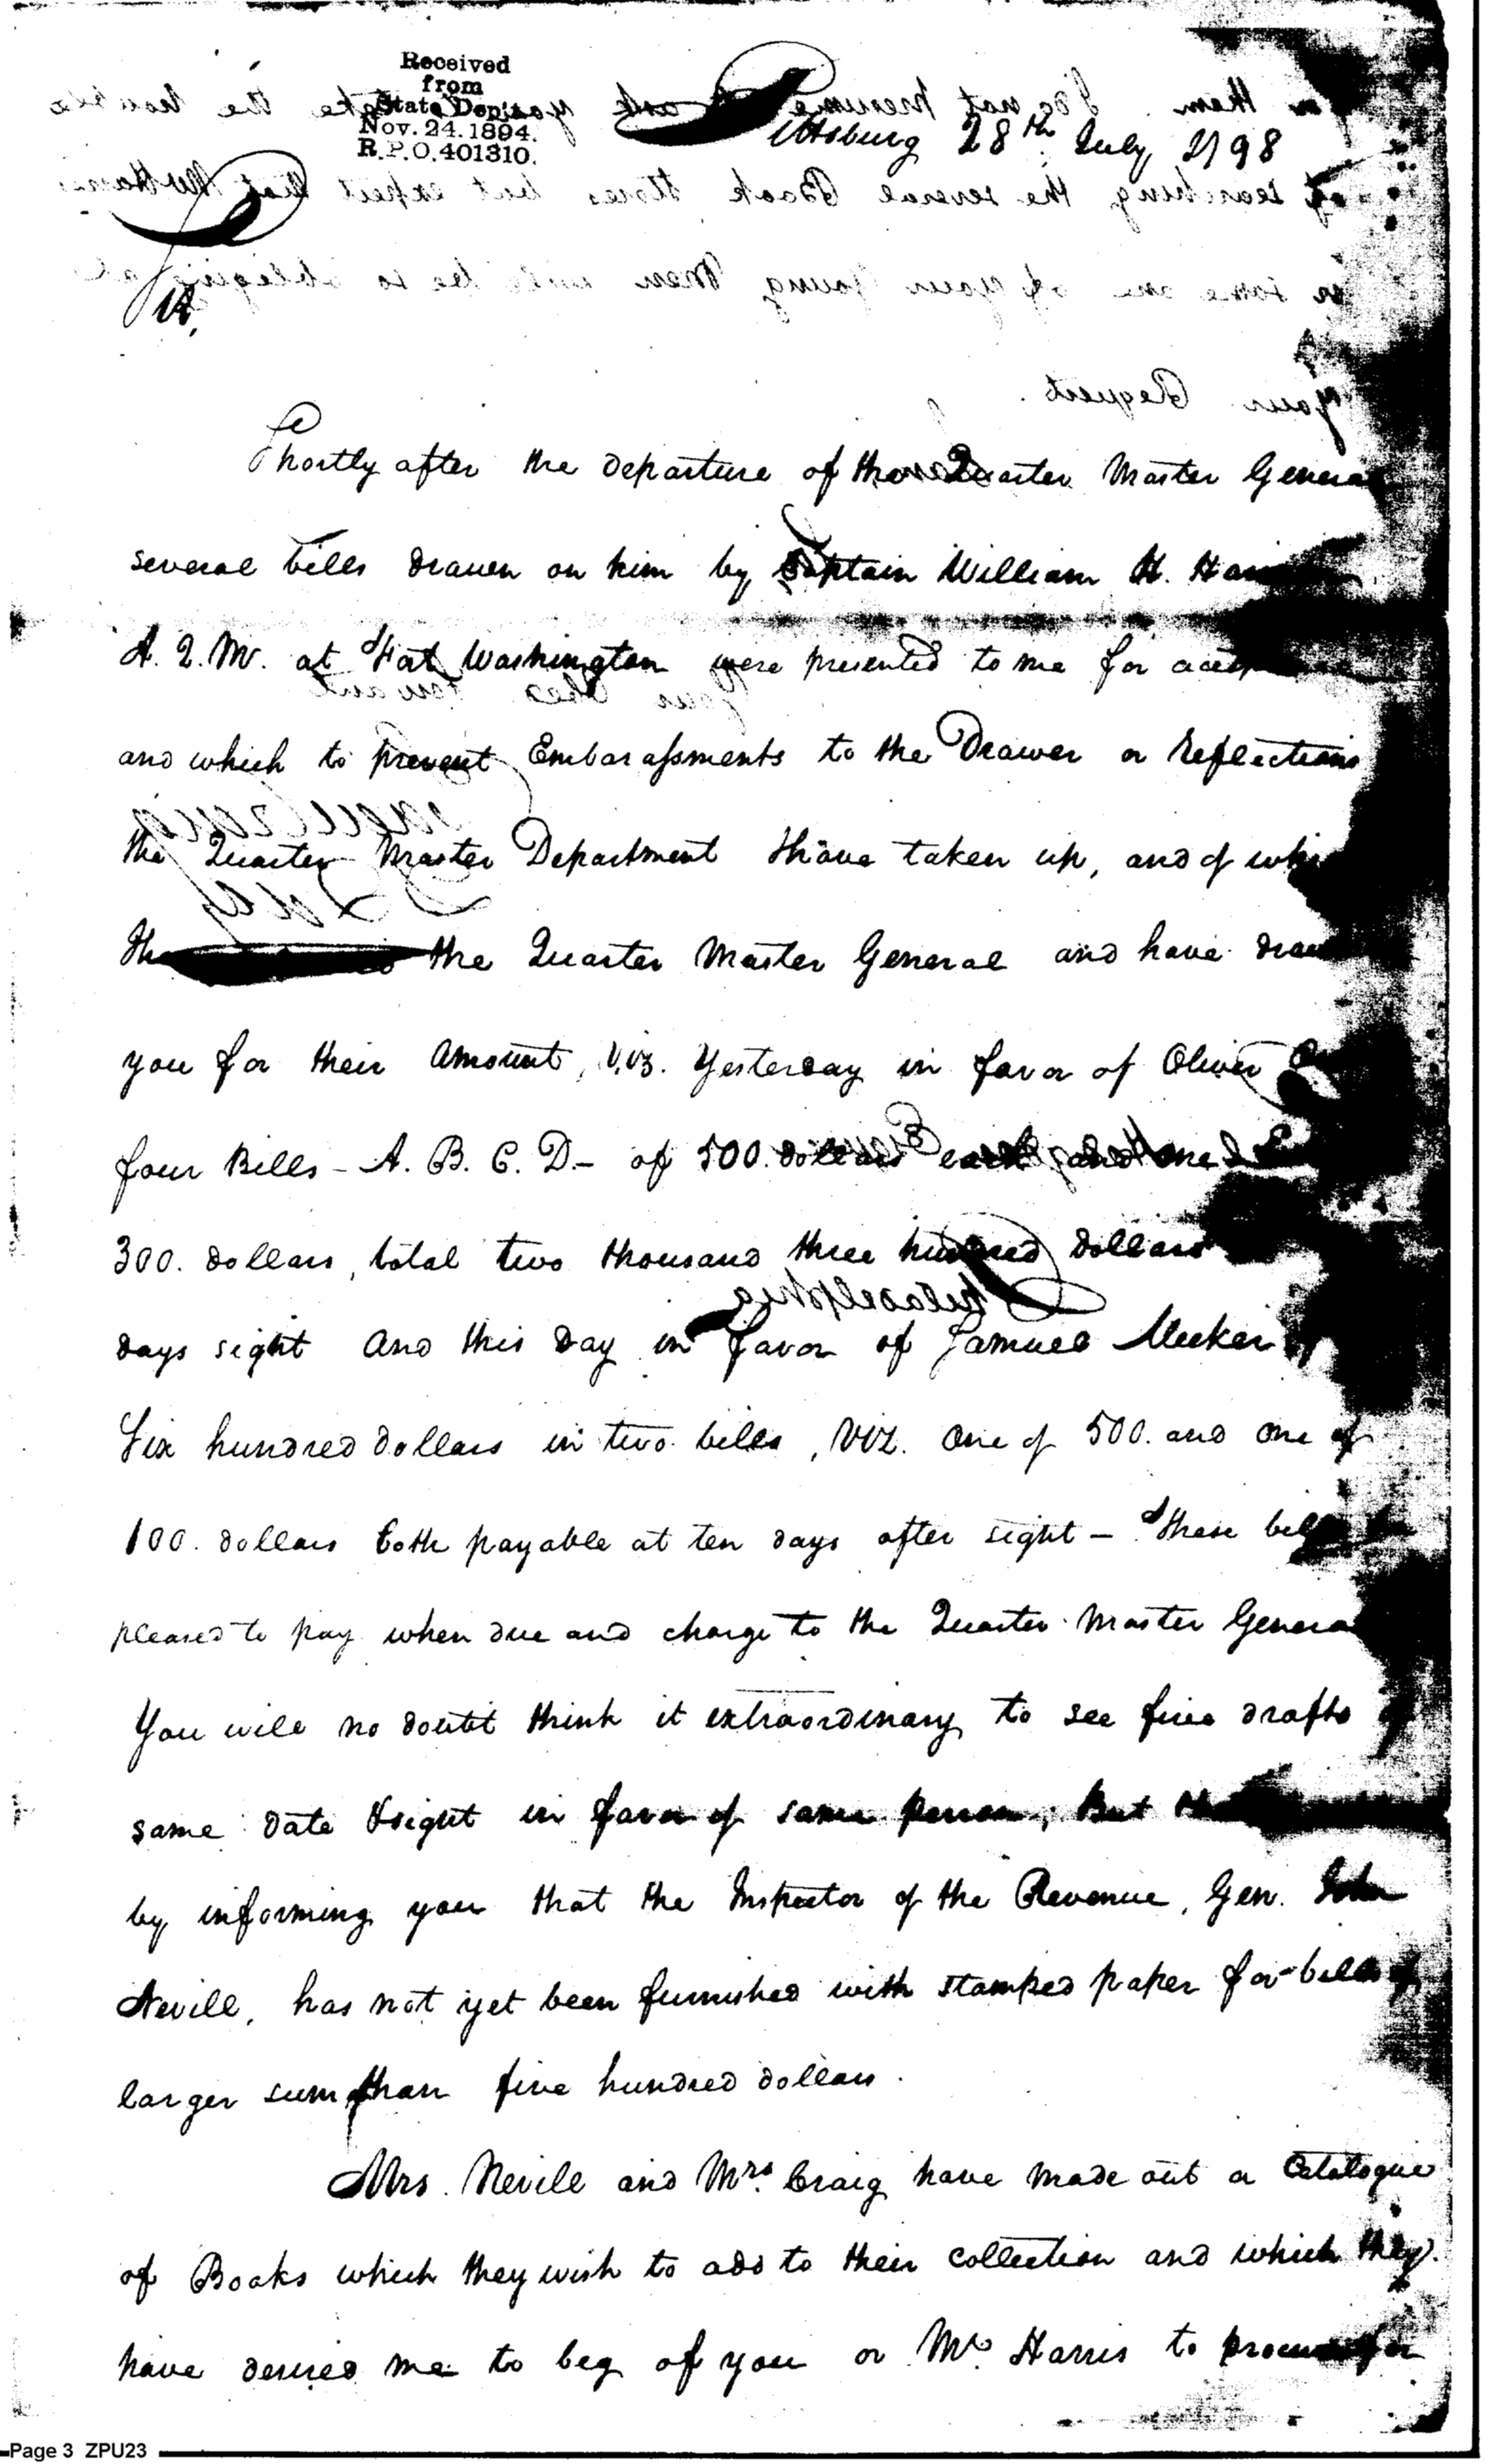 Received
from
State Dep't
Nov. 24. 1894.
R.P.O. 401310.
Pittsburg 28th July 1798
Sir,
Shortly after the departure of the Quarter Master General
several bills drawn on him by Captain William H.
A. Q. M. at Fort Washington were presented to me for
and which to prevent Embarassments to the Drawer or reflections
the Quarter Master Department I have taken up, and of
the Quarter Master General and have
you for their Amount, Viz. Yesterday in favor of Oliver
four Bills - A. B. C. D - of 500. dollars each and one
300. dollars, total two thousand three hundred dollars
days sight and this day in favor of Samuel Meeker
Six hundred dollars in two bills, Viz. One of 500. and one of
100. dollars both payable at ten days after sight - These
pleased to pay when due and charge to the Quarter Master General
You will no doubt think it extraordinary to see five drafts
same date & sight in favor of same person, But
by informing you that the Inspector of the Revenue, Gen. John
Nevill, has not yet been furnished with stamped paper for bills of
larger sum than five hundred dollars.
Mrs. Nevill and Mrs. Craig have made out a Catalogue
of Books which they wish to add to their collection and which they
have desired me to beg of you or Mr. Harris to procure for
Page 3 ZPU23